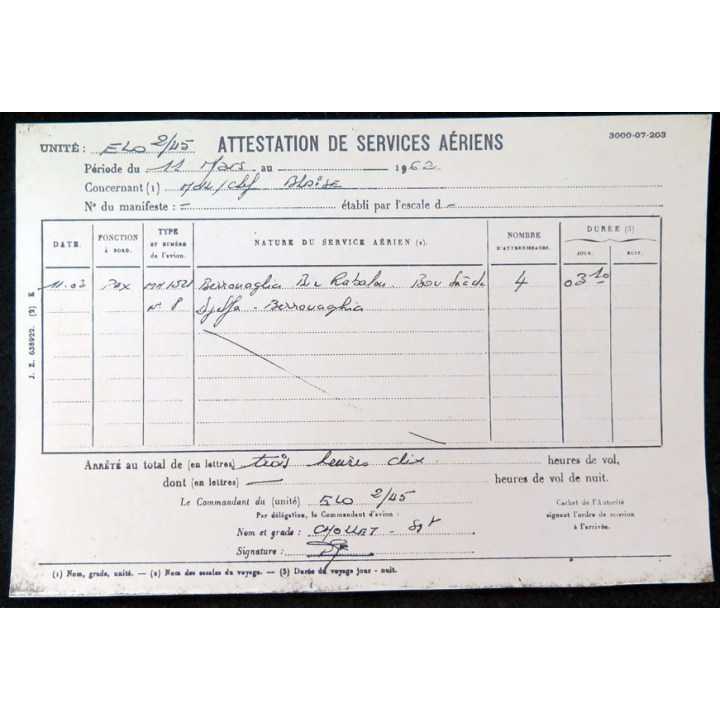 3000-07-203
UNITÉ : ELO 2/45 ATTESTATION DE SERVICES AÉRIENS
Période du 11 Mars au 1962
Concernant (1) Mdl/Chf BLOISE
N° du manifeste : - établi par l'escale d -
DATE. FONCTION À BORD. TYPE ET NUMÉRO de l'avion. NATURE DU SERVICE AÉRIEN (2). NOMBRE D'ATTERRISSAGES. DURÉE (3) JOUR. NUIT.
11.03 Pax MH 1521 Berrouaghia Bou Saada 4 03 10
N° 8 Djelfa - Berrouaghia
J. Z. 638922. (2) K
ARRÊTÉ au total de (en lettres) trois heures dix heures de vol,
dont (en lettres) — heures de vol de nuit.
Le Commandant du (unité) ELO 2/45
Par délégation, le Commandant d'avion :
Nom et grade : CHOLLET - Sgt
Signature :
Cachet de l'Autorité
signant l'ordre de mission
à l'arrivée.
(1) Nom, grade, unité. — (2) Nom des escales du voyage. — (3) Durée du voyage jour - nuit.